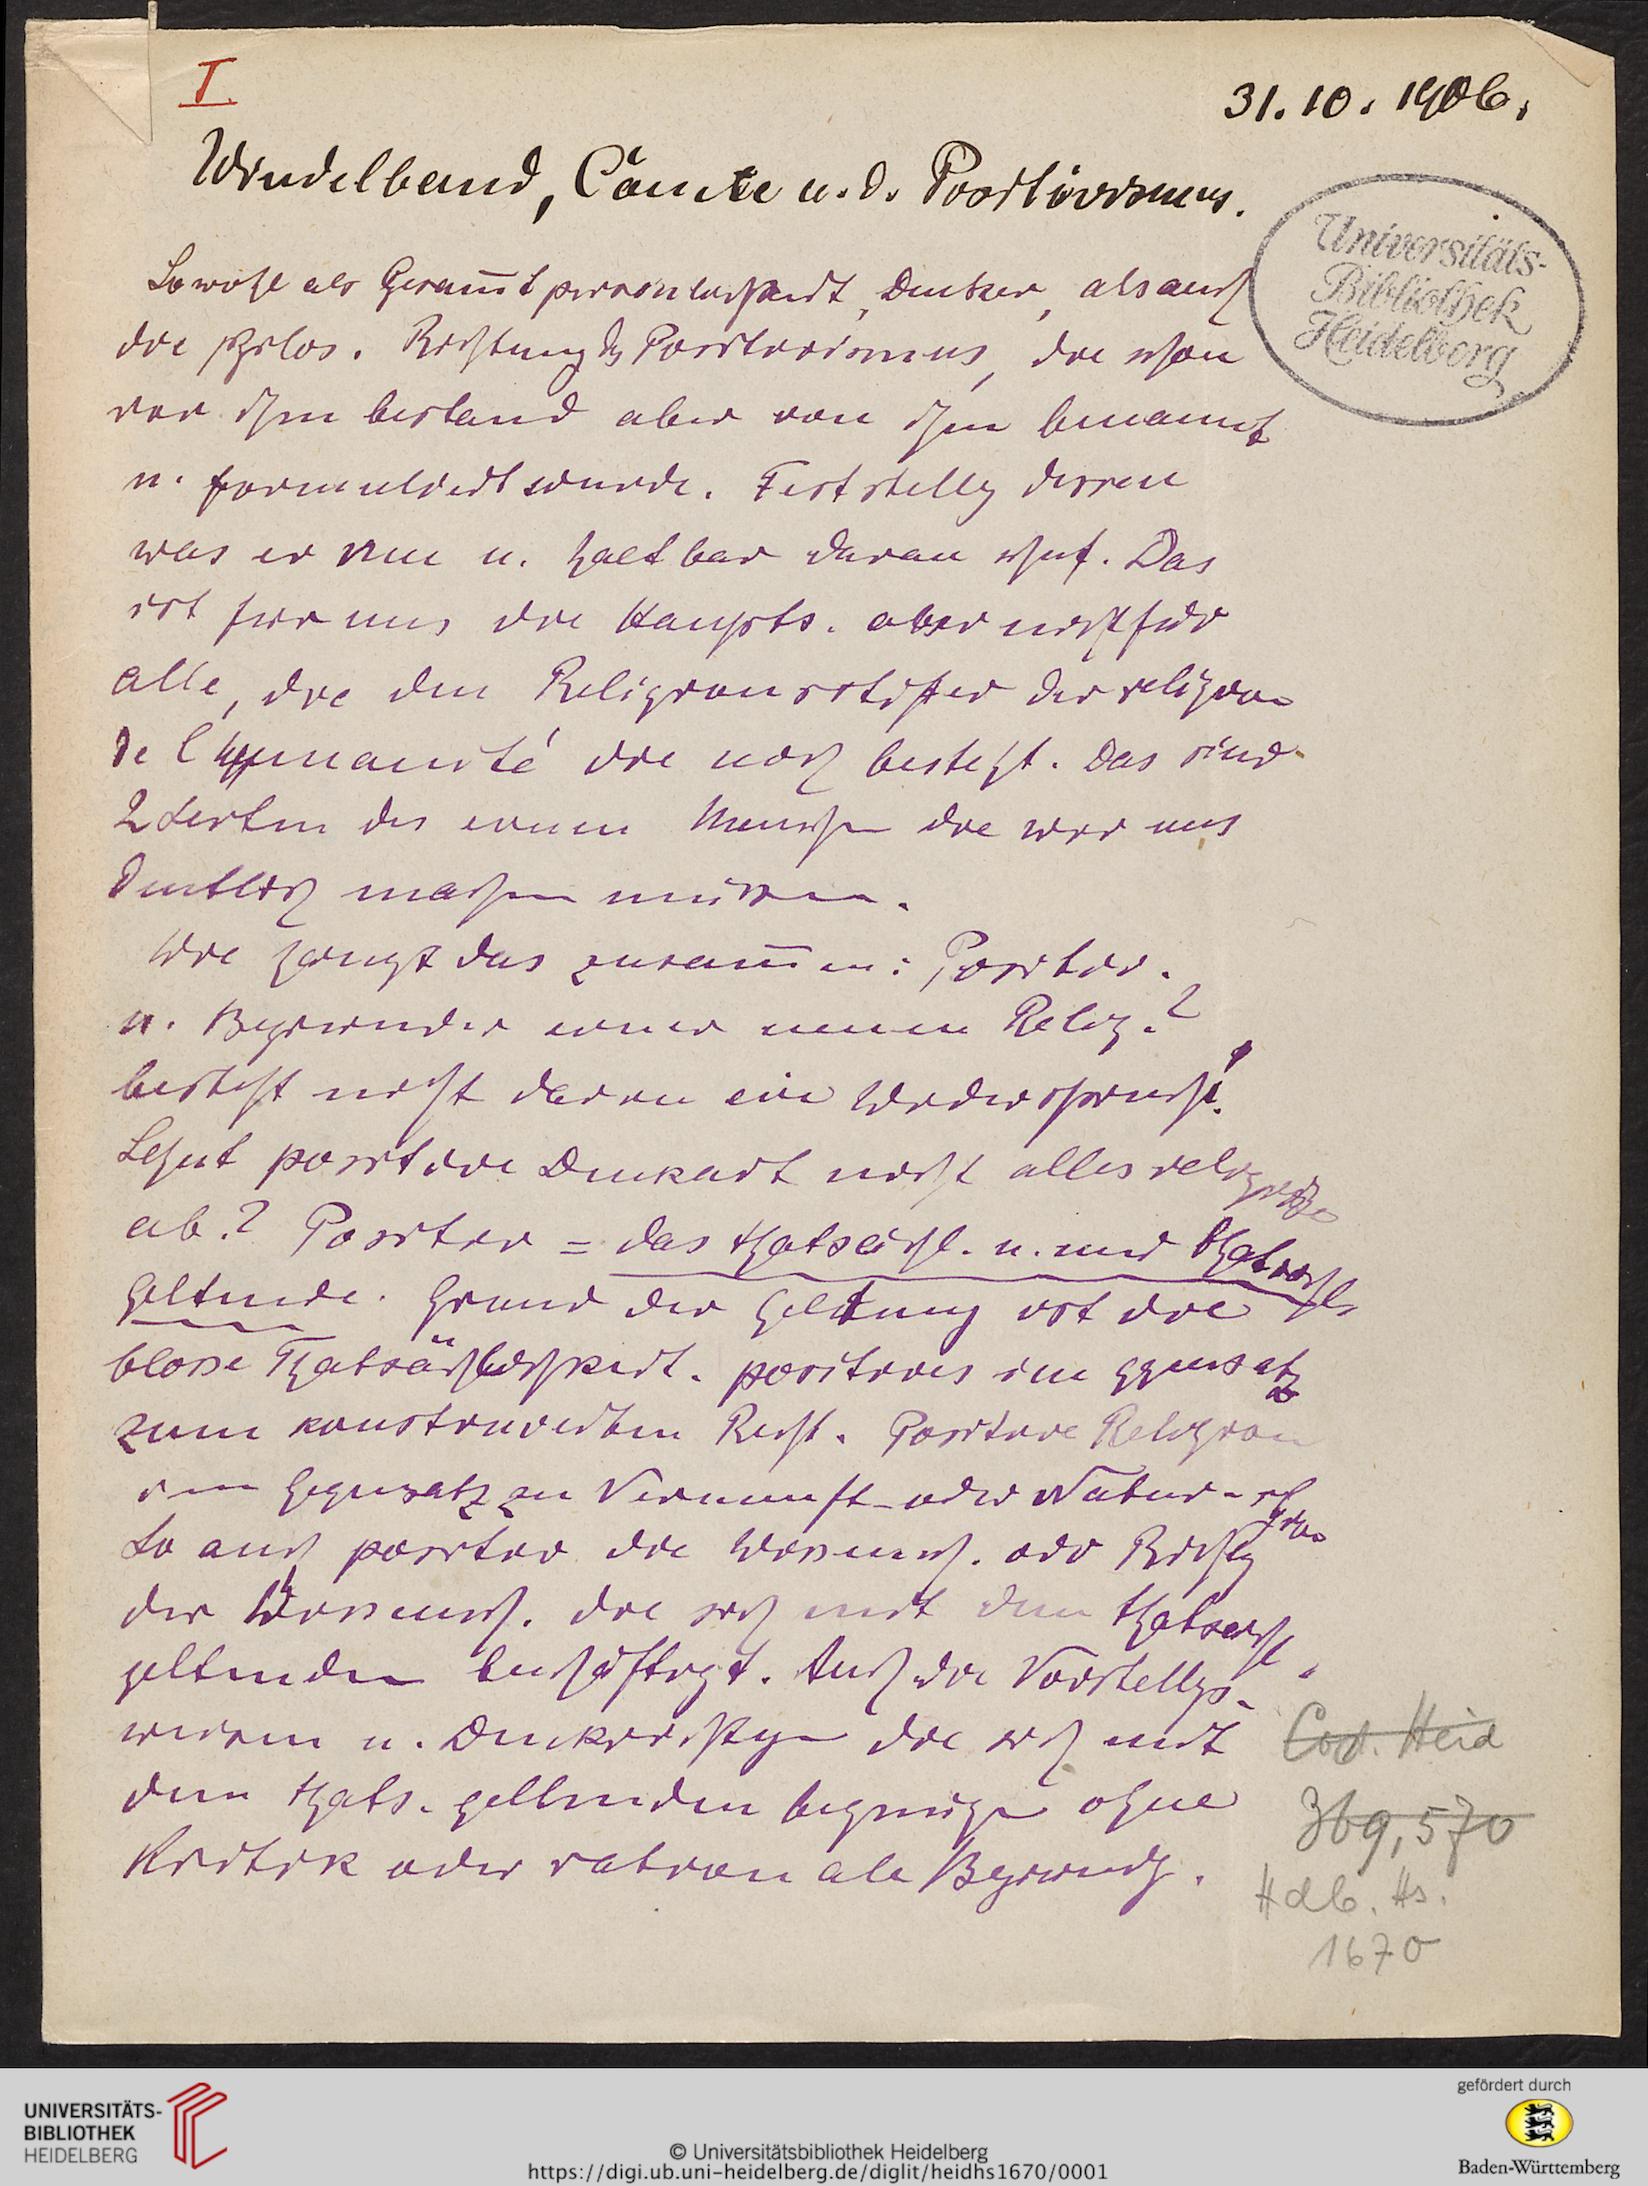 I.
31. 10. 1906.
Windelband, Comte u. d. Positivismus.
Universitäts-
Bibliothek
Heidelberg
Sowohl als Gesam̅tpersönlichkeit, Denker, als auch
die philos. Richtung des Positivismus, die schon
vor ihm bestand aber von ihm benannt
u. formuliert wurde. Feststellg dessen
was er neu u. haltbar daran schuf. Das
ist für uns die Haupts. aber nicht für
alle, die den Religionsstifter der religion
de l'humanité die noch besteht. Das sind
2 Seiten des einen Menschen die wir uns
deutlich machen müssen.
Wie hängt das zusam̅en: Positiv.
u. Begründer einer neuen Relig.?
besteht nicht darin ein Widerspruch!
Lehnt positive Denkart nicht alles religiöse
ab? Positiv = das thatsächl. u. nur thatsächl.
geltende. Grund der Geltung ist die
blosse Thatsächlichkeit. positives im Ggensatz
zum konstruierten Recht. Positive Religion
im Gegensatz zu Vernunft- oder Natur-religion
So auch positiv die Wissensch. odr Richtg
der Wissensch. die sich mit dem thatsächl.
geltenden beschäftigt. Auch die Vorstellgs-
weisen u. Denkrichtgen die sich mit
dem thats. geltenden begnügen ohne
Kritik oder rationale Begründg.
Cod. Heid
369,570
Hdlb. Hs.
1670
UNIVERSITÄTS-
BIBLIOTHEK
HEIDELBERG
© Universitätsbibliothek Heidelberg
https://digi.ub.uni-heidelberg.de/diglit/heidhs1670/0001
gefördert durch
Baden-Württemberg